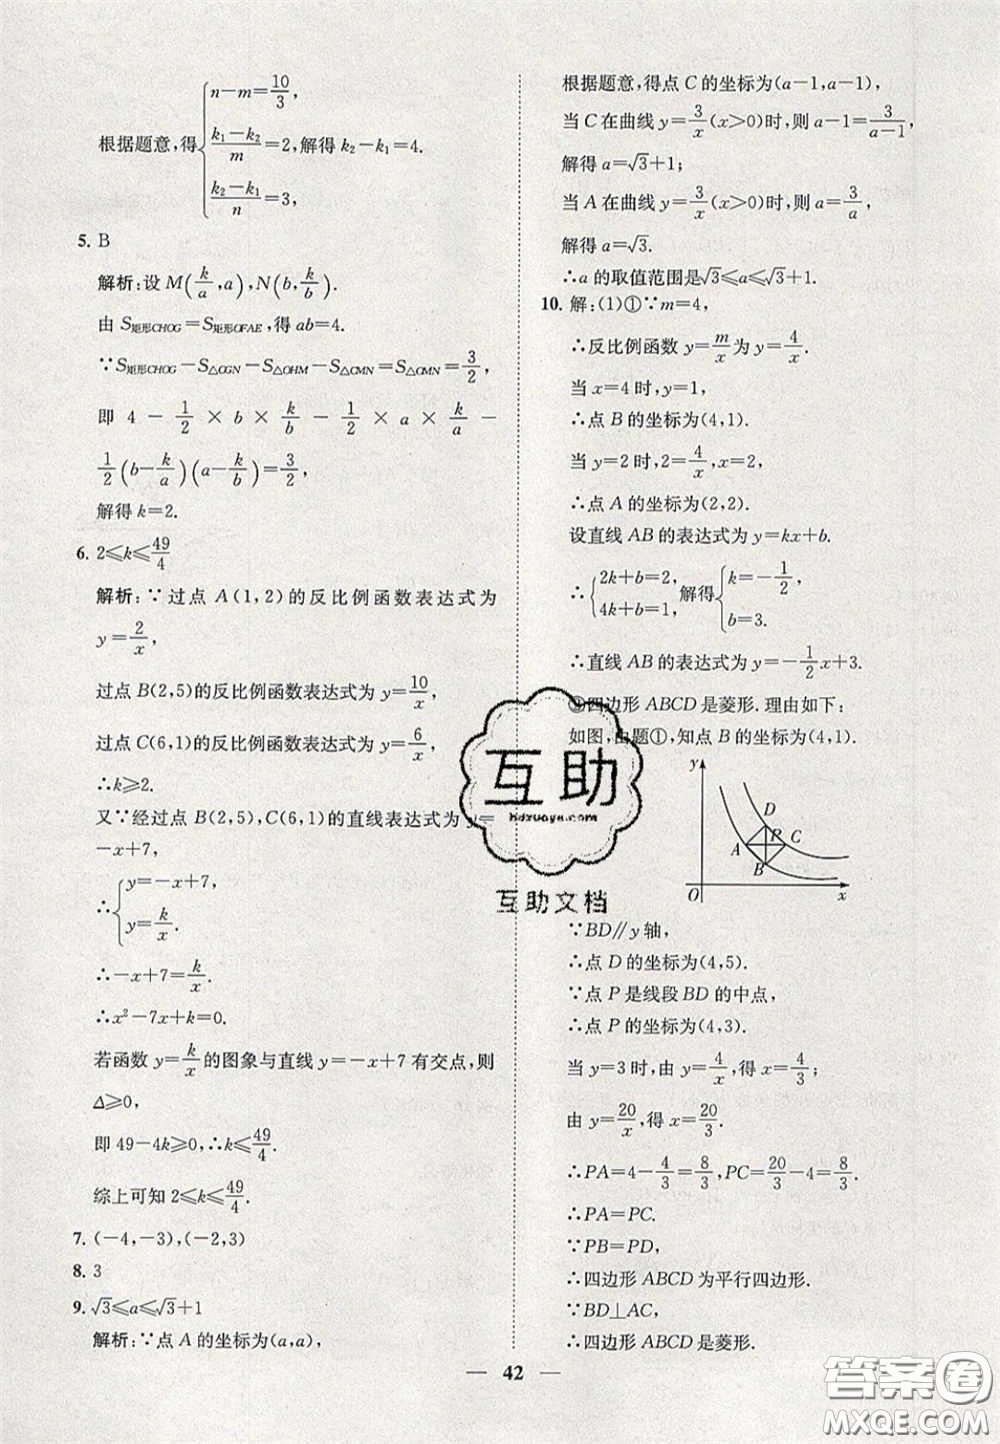 n-m=10/3,
根据题意,得 (k₁-k₂)/m=2,解得 k₂-k₁=4.
(k₂-k₁)/n=3,
5. B
解析:设 M(k/a,a),N(b,k/b).
由 S矩形CHOG=S矩形OFAE,得 ab=4.
∵S矩形CHOG-S△OGN-S△OHM-S△CMN=S△OMN=3/2,
即 4 - 1/2 × b × k/b - 1/2 × a × k/a -
1/2(b-k/a)(a-k/b)=3/2,
解得 k=2.
6. 2≤k≤49/4
解析:∵过点 A(1,2)的反比例函数表达式为
y=2/x,
过点 B(2,5)的反比例函数表达式为 y=10/x,
过点 C(6,1)的反比例函数表达式为 y=6/x,
∴k≥2.
又∵经过点 B(2,5),C(6,1)的直线表达式为 y=
-x+7,
∴{y=-x+7,
y=k/x.
∴-x+7=k/x.
∴x²-7x+k=0.
若函数 y=k/x 的图象与直线 y=-x+7 有交点,则
Δ≥0,
即 49-4k≥0,∴k≤49/4.
综上可知 2≤k≤49/4.
7. (-4,-3),(-2,3)
8. 3
9. √3≤a≤√3+1
解析:∵点 A 的坐标为(a,a),
根据题意,得点 C 的坐标为(a-1,a-1),
当 C 在曲线 y=3/x(x>0)时,则 a-1=3/(a-1),
解得 a=√3+1;
当 A 在曲线 y=3/x(x>0)时,则 a=3/a,
解得 a=√3.
∴a 的取值范围是√3≤a≤√3+1.
10. 解:(1)①∵m=4,
∴反比例函数 y=m/x 为 y=4/x.
当 x=4 时,y=1,
∴点 B 的坐标为(4,1).
当 y=2 时,2=4/x,x=2,
∴点 A 的坐标为(2,2).
设直线 AB 的表达式为 y=kx+b.
∴{2k+b=2, 4k+b=1, 解得{k=-1/2, b=3.
∴直线 AB 的表达式为 y=-1/2x+3.
②四边形 ABCD 是菱形.理由如下:
如图,由题①,知点 B 的坐标为(4,1).
y
D
A P C
B
O x
∵BD∥y 轴,
∴点 D 的坐标为(4,5).
∵点 P 是线段 BD 的中点,
∴点 P 的坐标为(4,3).
当 y=3 时,由 y=4/x,得 x=4/3;
由 y=20/x,得 x=20/3.
∴PA=4-4/3=8/3,PC=20/3-4=8/3.
∴PA=PC.
∵PB=PD,
∴四边形 ABCD 为平行四边形.
∵BD⊥AC,
∴四边形 ABCD 是菱形.
42
互助
hdzuoye.com
互助文档
答案圈
MXQE.COM